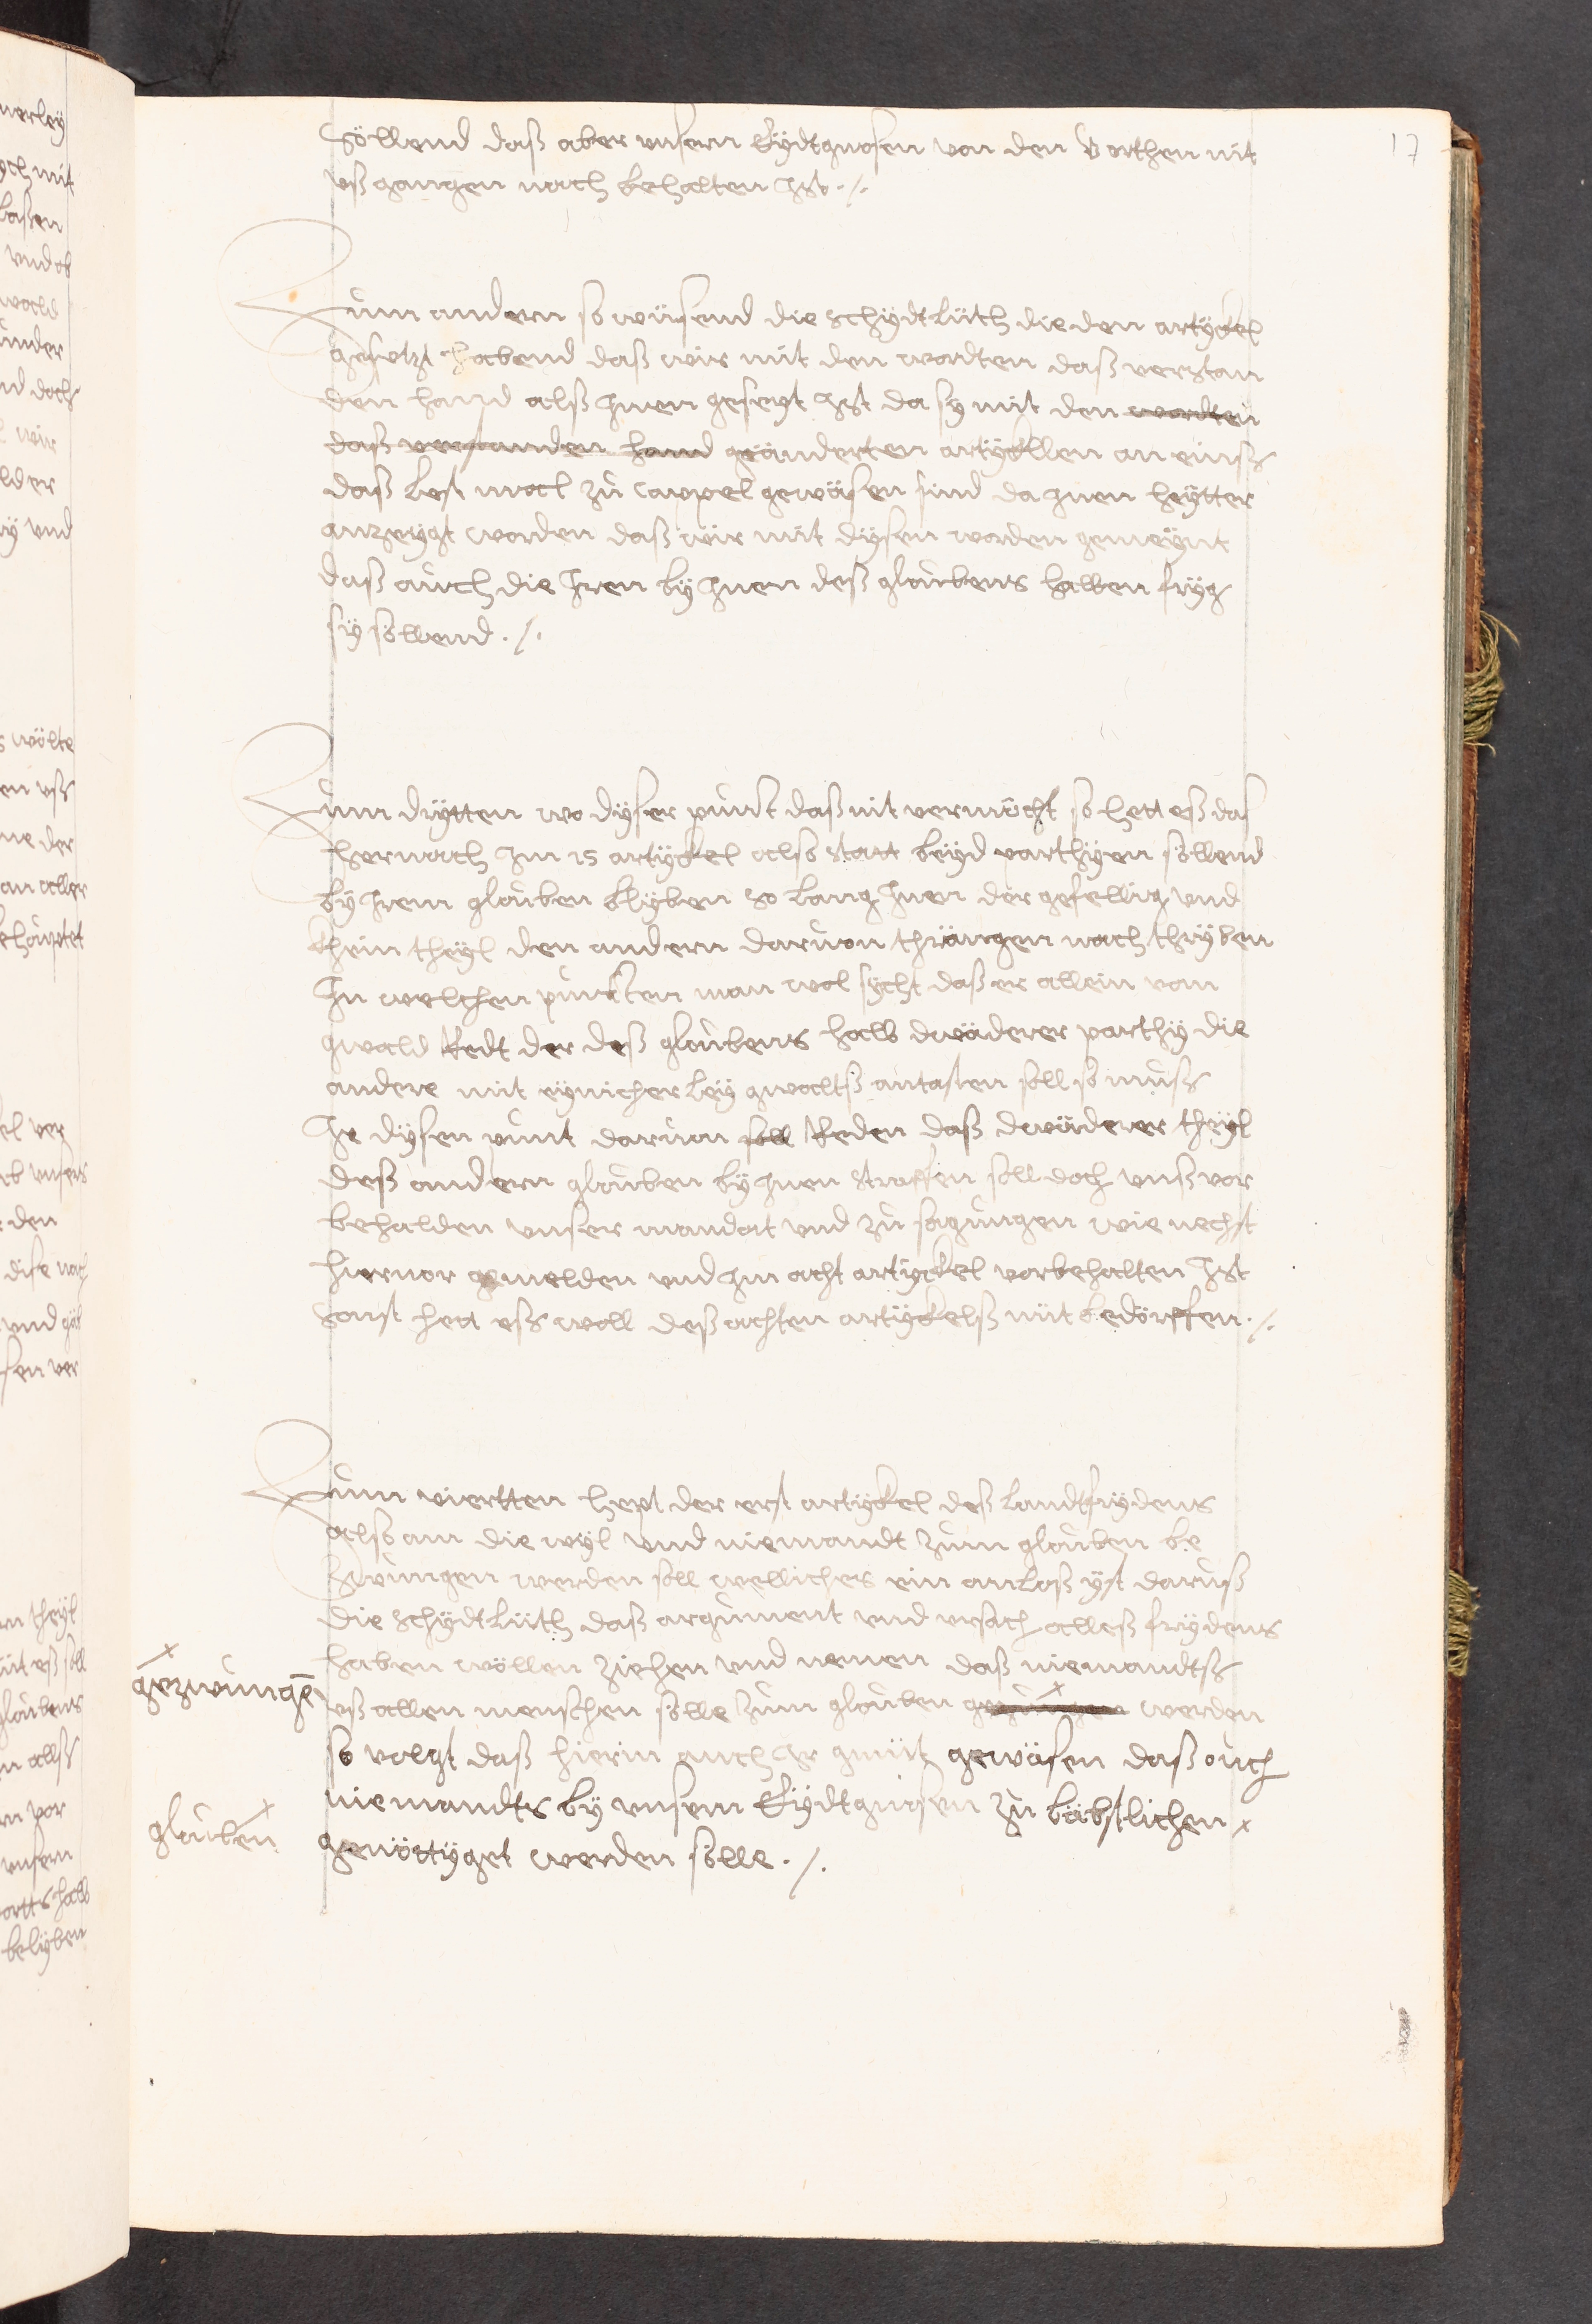 17
Söllend daß aber unsern Eÿdtgnosen von den v orthen nit
uß gangen nach behalten Ist ./.
Zum andern so wüssend die schÿdtlüth die den artÿckel
gesetzt habend daß wir mit den wordten daß verstan
den hand alß Inen geseyt Ist da sÿ mit den wordten
daß verstanden hand geänderten artÿcklen an einß
daß lest mal zu cappel gewäsen sind da Inen heÿtter
anzeÿgt worden daß wir mit dÿsen worden gemeÿnt
daß auch die Iren bÿ Inen deß glaubens halben frÿg
sÿ söllend ./.
Zum drÿtten wo dÿser punct daß nit vermöcht so hett eß das
hernach Im 15 artÿckel also statt beÿd parthÿen söllend
bÿ Irem glauben blÿben so lang Inen der gefellig und
khein theÿl den andern daruon thrängen nach thrÿben
In welchen puncten man wol sÿcht daß er allein von
gwald Redt der deß glaubens halb dwäderer parthÿ die
andere mit eÿnicherleÿ gwaltß antasten soll so muß
Ie dÿsen punt daruon soll Reden daß dwäderer theÿl
deß andern glauben bÿ Inen straffen soll doch unß vor
behalden unser mandat und zu sagungen wie nechst
hieruor gemelden und Im acht artÿckel vorbehalten Ist
sonst hett eß woll deß achten artÿckelß nüt bedörffen ./.
Zum viertten hept der erst artÿckel deß landtfrÿdens
also an die wÿl und niemandt zum glauben be
zwungen werden soll wellicher ein anlaß ÿst daruß
die schÿdtlüth daß argument und ursach alleß frÿdens
haben wöllen ziehen und nemen daß niemandtß
uß allen menschen sölle zum glauben gezungen werden
gezwungē
so volgt daß hierin auch Ir gmüt gewäsen daß ouch
niemandts bÿ unsern Eÿdtgnosen zu bäbstlichen
glauben
genöttÿget werden sölle ./.